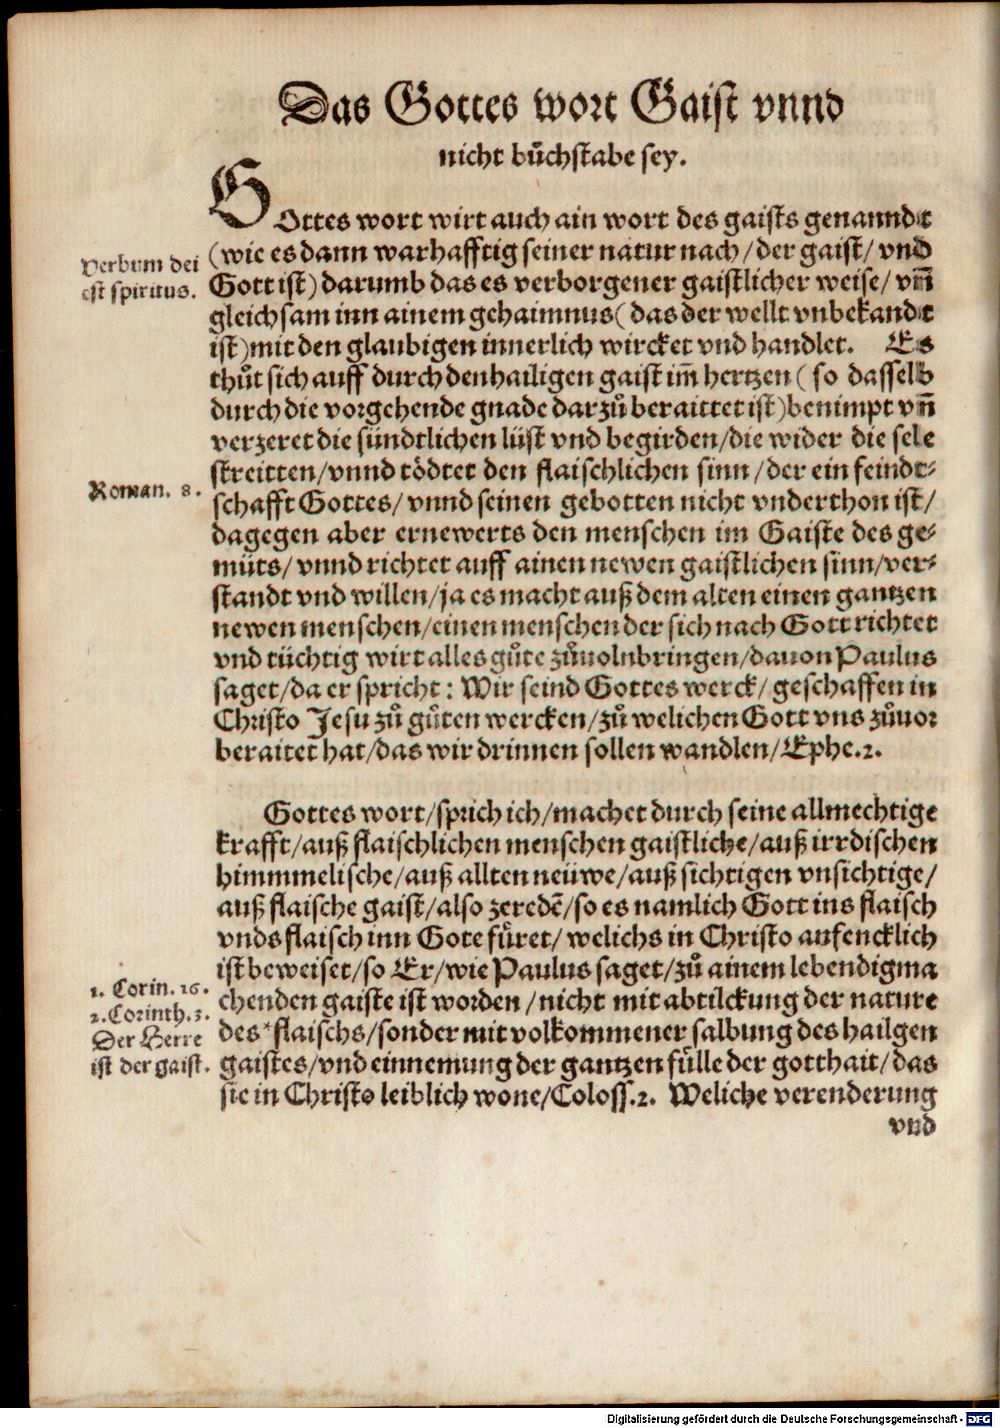 Das Gottes wort Gaist vnnd
nicht bůchstabe sey.
GOttes wort wirt auch ain wort des gaists genanndt
(wie es dann warhafftig seiner natur nach/ der gaist/ vnd
Gott ist) darumb das es verborgener gaistlicher weise/ vñ
gleichsam inn ainem gehaimnus (das der wellt vnbekandt
ist) mit den glaubigen innerlich wircket vnd handlet. Es
thůt sich auff durch den hailigen gaist im̃ hertzen (so dasselb
durch die vorgehende gnade darzů beraittet ist) benimpt vñ
verzeret die sündtlichen lüst vnd begirden/ die wider die sele
streitten/ vnnd tödtet den flaischlichen sinn/ der ein feindt-
schafft Gottes/ vnnd seinen gebotten nicht vnderthon ist/
dagegen aber ernewerts den menschen im Gaiste des ge-
müts/ vnnd richtet auff ainen newen gaistlichen sinn/ ver-
standt vnd willen/ ja es macht auß dem alten einen gantzen
newen menschen/ einen menschen der sich nach Gott richtet
vnd tüchtig wirt alles gůte zůuolnbringen/ dauon Paulus
saget/ da er spricht: Wir seind Gottes werck/ geschaffen in
Christo Jesu zů gůten wercken/ zů welichen Gott vns zůuor
beraitet hat/ das wir drinnen sollen wandlen/ Ephe.2.
Verbum dei
est spiritus.
Roman. 8.
Gottes wort/ sprich ich/ machet durch seine allmechtige
krafft/ auß flaischlichen menschen gaistliche/ auß irrdischen
himmmelische/ auß allten neüwe/ auß sichtigen vnsichtige/
auß flaische gaist/ also zeredẽ/ so es namlich Gott ins flaisch
vnds flaisch inn Gote füret/ welichs in Christo anfencklich
ist beweiset/ so Er/ wie Paulus saget/ zů ainem lebendigma
chenden gaiste ist worden/ nicht mit abtilckung der nature
des flaischs/ sonder mit volkommener salbung des hailgen
gaistes/ vnd einnemung der gantzen fülle der gotthait/ das
sie in Christo leiblich wone/ Coloss.2. Weliche verenderung
vnd
1. Corin. 16.
2. Corinth. 3.
Der Herre
ist der gaist.
Digitalisierung gefördert durch die Deutsche Forschungsgemeinschaft - DFG